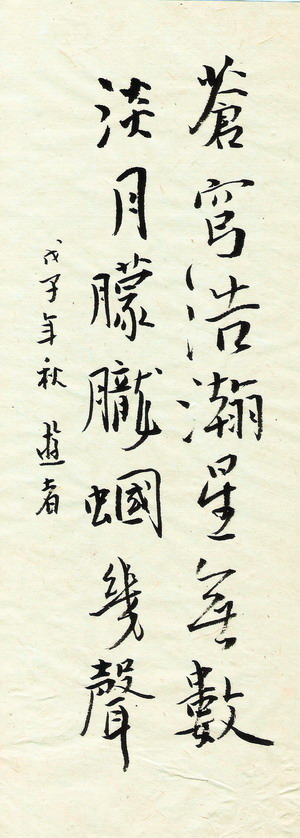 蒼穹浩瀚星無數
淡月朦朧蟈幾聲
戊子年秋 蘧者